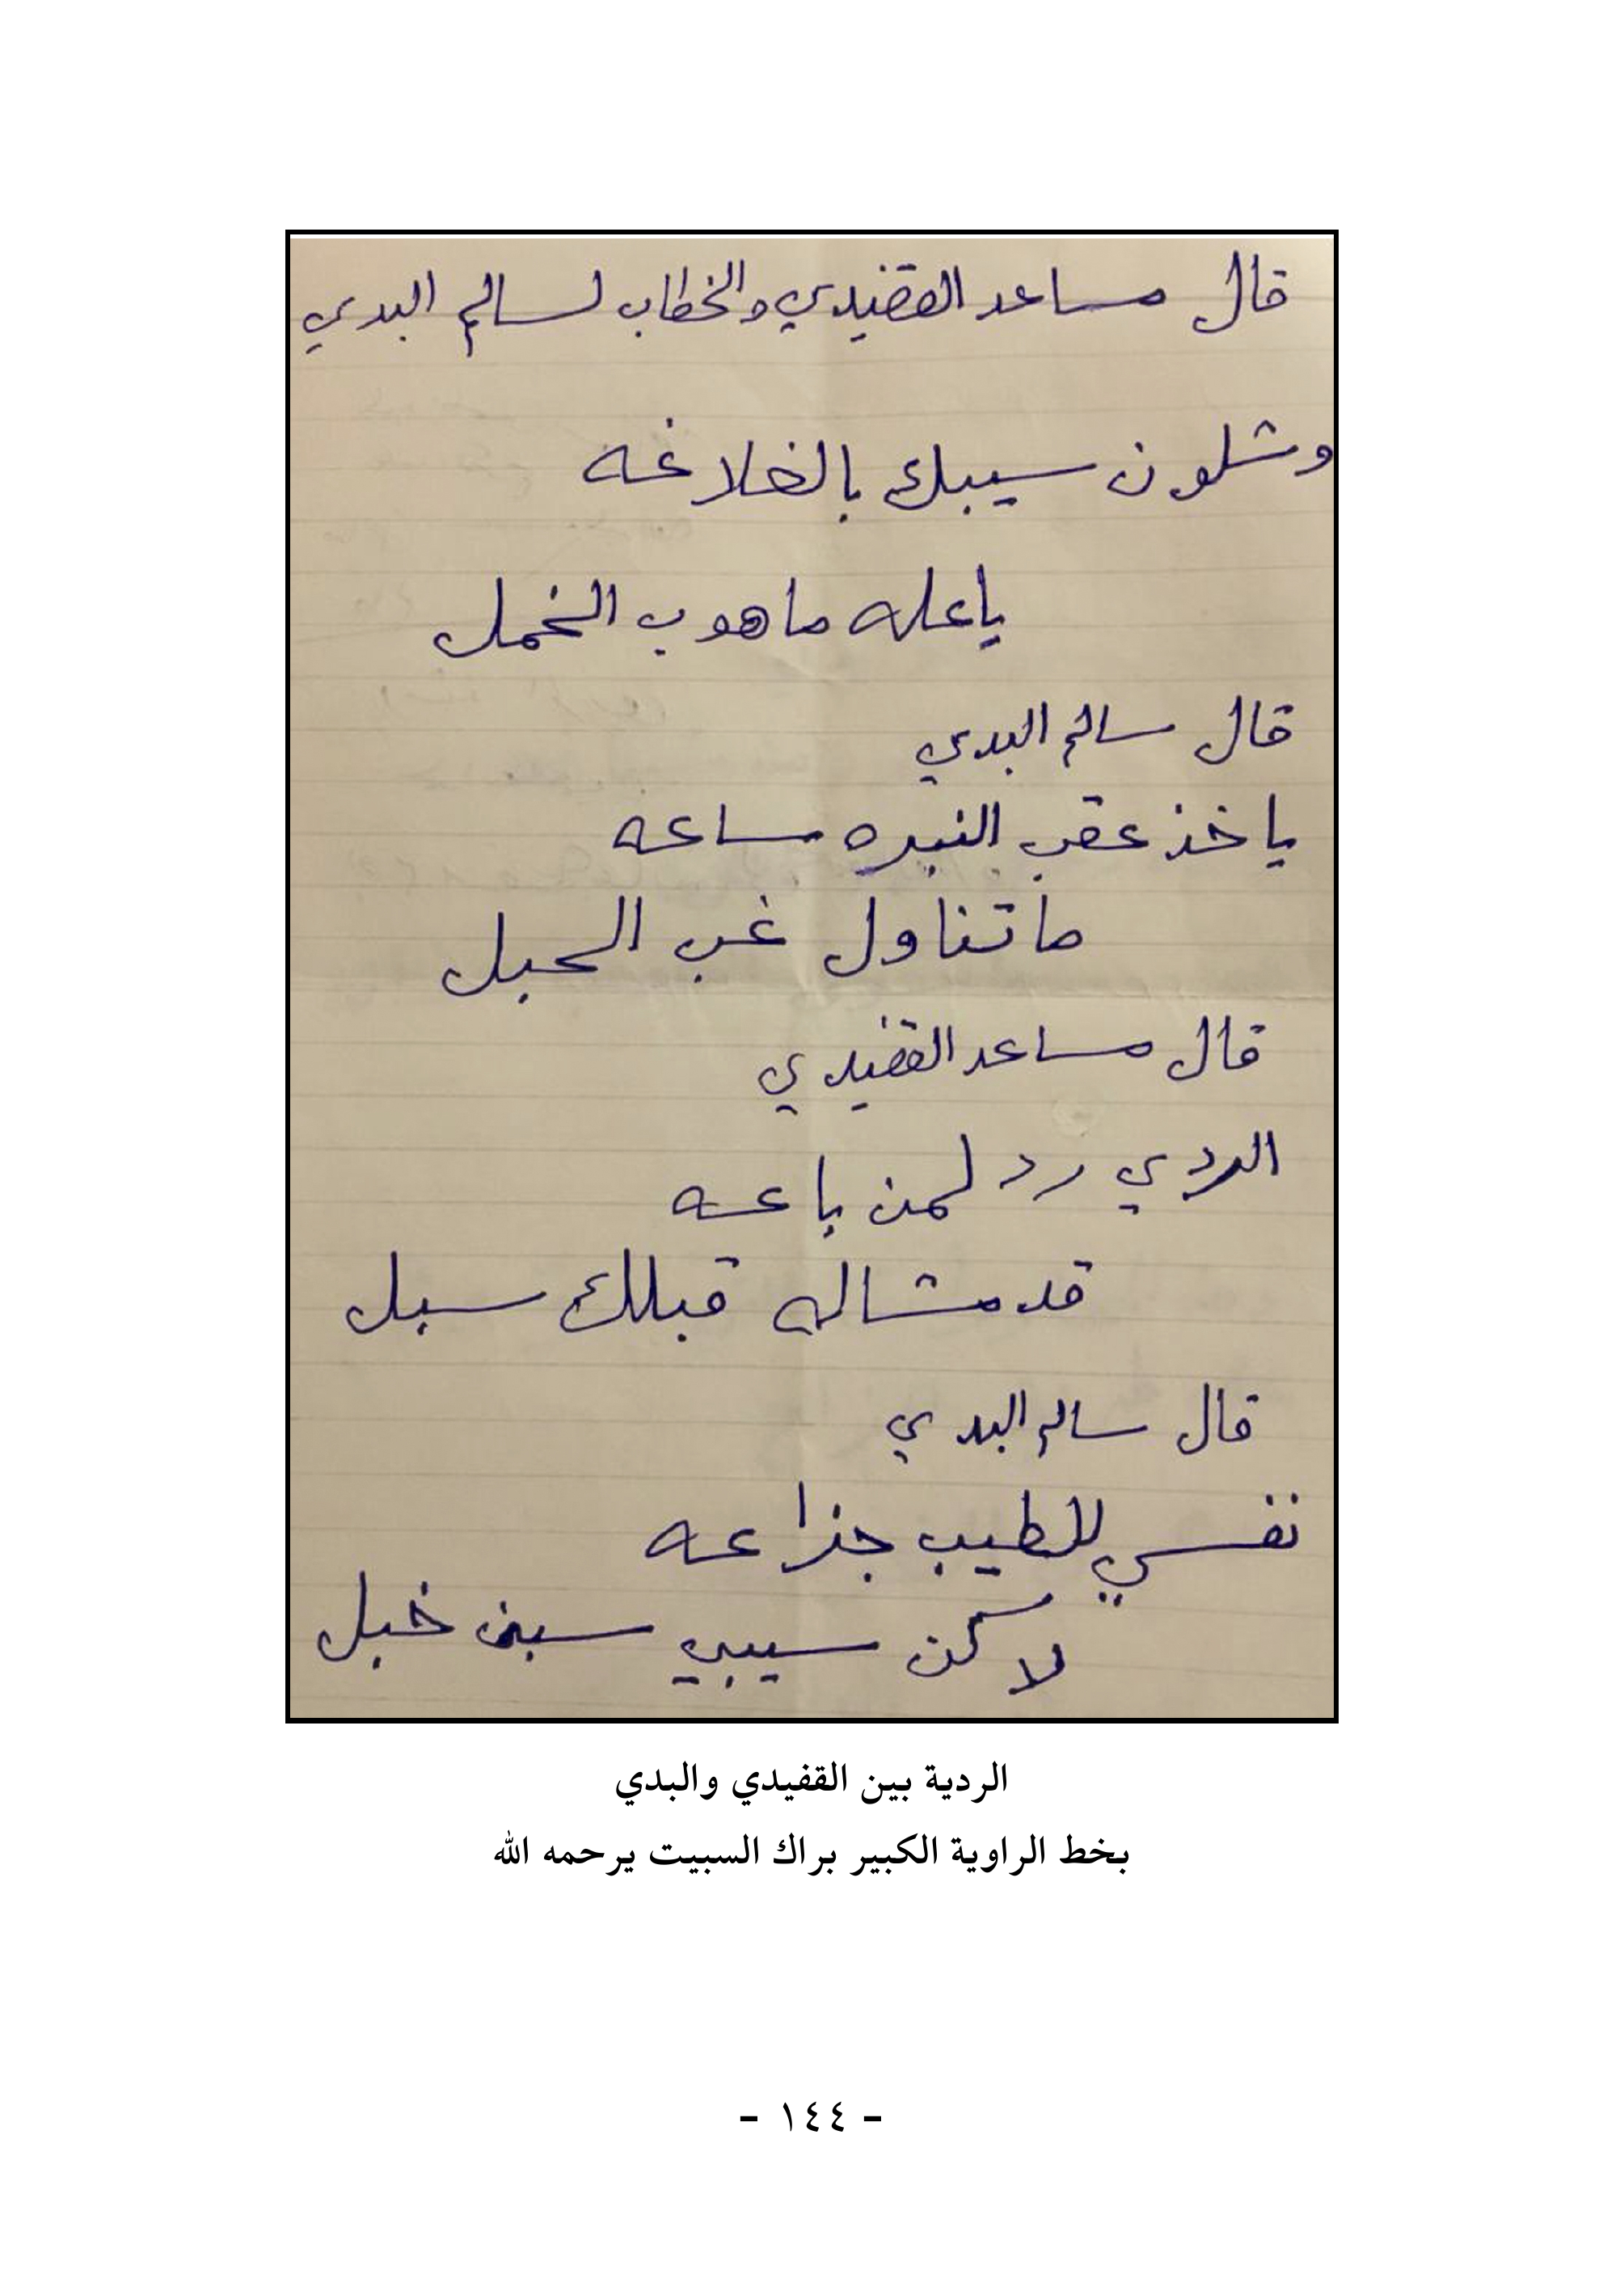 قال مساعد القفيدي والخطاب لسالم البدي
وشلون سيبك بالخلاغه
ياعله ماهوب الخمل
قال سالم البدي
ياخذ عقب النبره ساعه
ماتناول غب الحبل
قال مساعد القفيدي
الردي رد لمن باعه
قد مشاله قبلك سبل
قال سالم البدي
نفسي للطيب جزاعه
لاكن سيبي سبن خبل
الردية بين القفيدي والبدي
بخط الراوية الكبير براك السبيت يرحمه الله
- ١٤٤ -